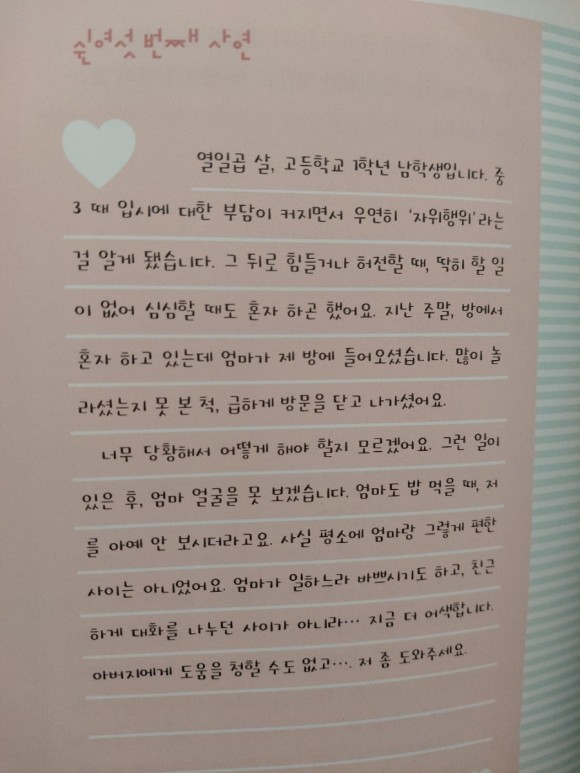 쉰여섯 번째 사연
열일곱 살, 고등학교 1학년 남학생입니다. 중
3 때 입시에 대한 부담이 커지면서 우연히 ‘자위행위’라는
걸 알게 됐습니다. 그 뒤로 힘들거나 허전할 때, 딱히 할 일
이 없어 심심할 때도 혼자 하곤 했어요. 지난 주말, 방에서
혼자 하고 있는데 엄마가 제 방에 들어오셨습니다. 많이 놀
라셨는지 못 본 척, 급하게 방문을 닫고 나가셨어요.
너무 당황해서 어떻게 해야 할지 모르겠어요. 그런 일이
있은 후, 엄마 얼굴을 못 보겠습니다. 엄마도 밥 먹을 때, 저
를 아예 안 보시더라고요. 사실 평소에 엄마랑 그렇게 편한
사이는 아니었어요. 엄마가 일하느라 바쁘시기도 하고, 친근
하게 대화를 나누던 사이가 아니라… 지금 더 어색합니다.
아버지에게 도움을 청할 수도 없고…. 저 좀 도와주세요.